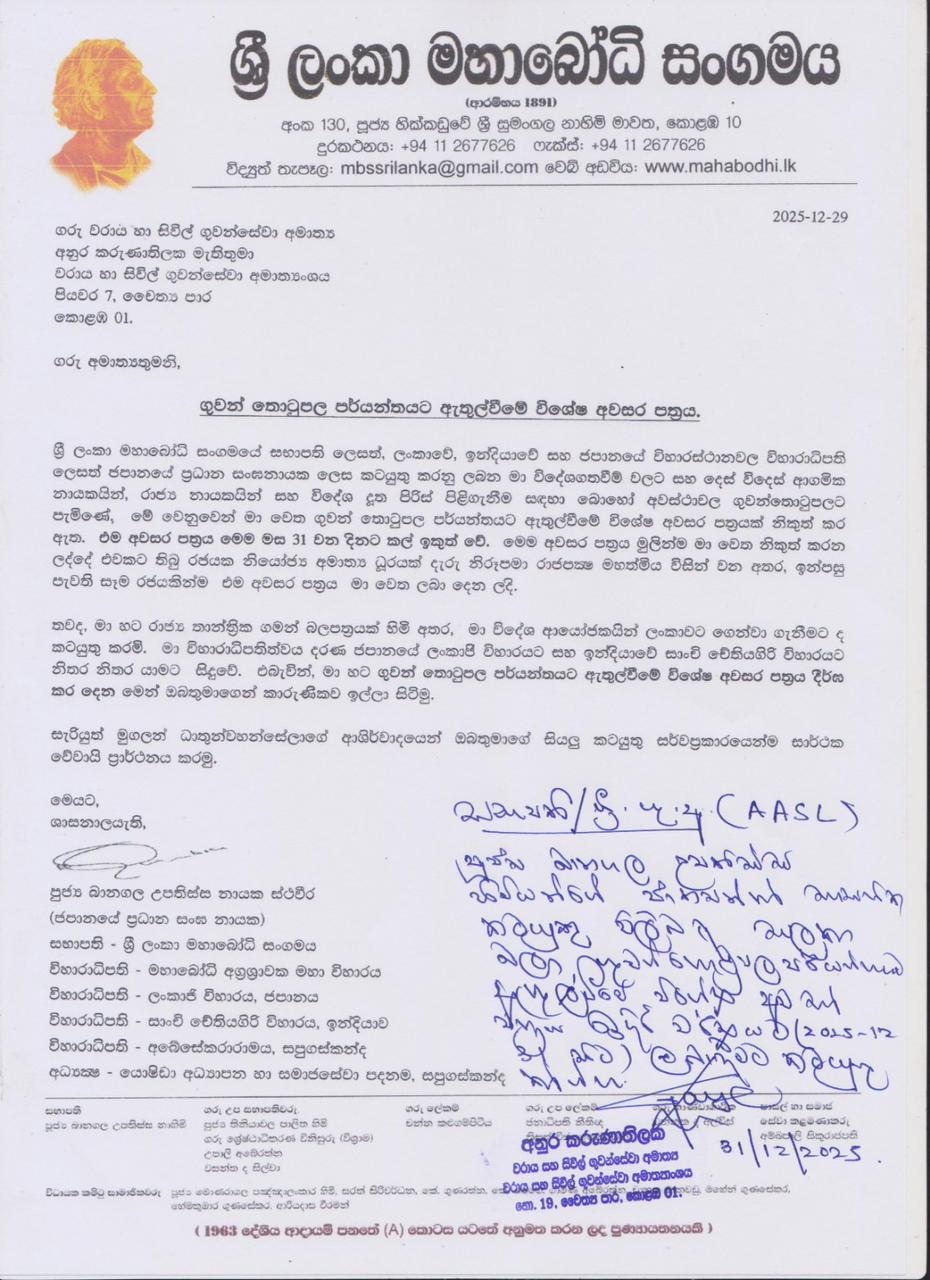 ශ්‍රී ලංකා මහාබෝධි සංගමය
(ආරම්භය 1891)
අංක 130, පූජ්‍ය හික්කඩුවේ ශ්‍රී සුමංගල නාහිමි මාවත, කොළඹ 10
දුරකථනය: +94 11 2677626 ෆැක්ස්: +94 11 2677626
විද්‍යුත් තැපෑල: mbssrilanka@gmail.com වෙබ් අඩවිය: www.mahabodhi.lk
2025-12-29
ගරු වරාය හා සිවිල් ගුවන්සේවා අමාත්‍ය
අනුර කරුණාතිලක මැතිතුමා
වරාය හා සිවිල් ගුවන්සේවා අමාත්‍යංශය
පියවර 7, චෛත්‍ය පාර
කොළඹ 01.
ගරු අමාත්‍යතුමනි,
ගුවන් තොටුපල පර්යන්තයට ඇතුල්වීමේ විශේෂ අවසර පත්‍රය.
ශ්‍රී ලංකා මහාබෝධි සංගමයේ සභාපති ලෙසත්, ලංකාවේ, ඉන්දියාවේ සහ ජපානයේ විහාරස්ථානවල විහාරාධිපති
ලෙසත් ජපානයේ ප්‍රධාන සංඝනායක ලෙස කටයුතු කරනු ලබන මා විදේශගතවීම් වලට සහ දෙස් විදෙස් ආගමික
නායකයින්, රාජ්‍ය නායකයින් සහ විදේශ දූත පිරිස් පිළිගැනීම සඳහා බොහෝ අවස්ථාවල ගුවන්තොටුපලට
පැමිණේ, මේ වෙනුවෙන් මා වෙත ගුවන් තොටුපල පර්යන්තයට ඇතුල්වීමේ විශේෂ අවසර පත්‍රයක් නිකුත් කර
ඇත. එම අවසර පත්‍රය මෙම මස 31 වන දිනට කල් ඉකුත් වේ. මෙම අවසර පත්‍රය මුලින්ම මා වෙත නිකුත් කරන
ලද්දේ එවකට තිබු රජයක නියෝජ්‍ය අමාත්‍ය ධූරයක් දැරු නිරූපමා රාජපක්ෂ මහත්මිය විසින් වන අතර, ඉන්පසු
පැවති සෑම රජයකින්ම එම අවසර පත්‍රය මා වෙත ලබා දෙන ලදි.
තවද, මා හට රාජ්‍ය තාන්ත්‍රික ගමන් බලපත්‍රයක් හිමි අතර, මා විදේශ ආයෝජකයින් ලංකාවට ගෙන්වා ගැනීමට ද
කටයුතු කරමි. මා විහාරාධිපතිත්වය දරණ ජපානයේ ලංකාජි විහාරයට සහ ඉන්දියාවේ සාංචි චේතියගිරි විහාරයට
නිතර නිතර යාමට සිදුවේ. එබැවින්, මා හට ගුවන් තොටුපල පර්යන්තයට ඇතුල්වීමේ විශේෂ අවසර පත්‍රය දීර්ඝ
කර දෙන මෙන් ඔබතුමාගෙන් කාරුණිකව ඉල්ලා සිටිමු.
සැරියුත් මුගලන් ධාතූන්වහන්සේලාගේ ආශිර්වාදයෙන් ඔබතුමාගේ සියලු කටයුතු සර්වප්‍රකාරයෙන්ම සාර්ථක
වේවායි ප්‍රාර්ථනය කරමු.
මෙයට,
ශාසනාලයැති,
පූජ්‍ය බානගල උපතිස්ස නායක ස්ථවිර
(ජපානයේ ප්‍රධාන සංඝ නායක)
සභාපති - ශ්‍රී ලංකා මහාබෝධි සංගමය
විහාරාධිපති - මහාබෝධි අග්‍රශ්‍රාවක මහා විහාරය
විහාරාධිපති - ලංකාජි විහාරය, ජපානය
විහාරාධිපති - සාංචි චේතියගිරි විහාරය, ඉන්දියාව
විහාරාධිපති - අබේසේකරාරාමය, සපුගස්කන්ද
අධ්‍යක්ෂ - යොෂිඩා අධ්‍යාපන හා සමාජසේවා පදනම, සපුගස්කන්ද
සභාපති/ශ්‍රී.ගු.ස. (AASL)
පූජ්‍ය බානගල උපතිස්ස
හිමියන්ගේ
කටයුතු පිලිබඳ සලකා
බලා ගුවන්තොටුපල පර්යන්තයට
ඇතුල්වීමේ විශේෂ අවසර
(2025-12
ලබාදීමට කටයුතු
කරන්න.
31/12/2025.
අනුර කරුණාතිලක
වරාය සහ සිවිල් ගුවන්සේවා අමාත්‍ය
වරාය සහ සිවිල් ගුවන්සේවා අමාත්‍යංශය
නො. 19, චෛත්‍ය පාර, කොළඹ 01.
සභාපති
පූජ්‍ය බානගල උපතිස්ස නාහිමි
ගරු උප සභාපතිවරු
පූජ්‍ය තිනියාවල පාලිත හිමි
ගරු ශ්‍රේෂ්ඨාධිකරණ විනිසුරු (විශ්‍රාම)
උපාලි අබේරත්න
වසන්ත ද සිල්වා
ගරු ලේකම්
චන්න කළුගම්පිටිය
ගරු උප ලේකම්
ජනාධිපති නීතිඥ
ගරු භාණ්ඩාගාරික
සේවා කළමණාකරු
අම්බපාලි සිකුරාජපති
විධායක කමිටු සාමාජිකවරු පූජ්‍ය මොණරාගල පඤ්ඤාලංකාර හිමි, සරත් සිරිවර්ධන, කේ. ගුණරත්න, මහේන් ගුණසේකර,
හේමකුමාර ගුණසේකර. ආරියදාස වීරමන්
( 1963 දේශීය ආදායම් පනතේ (A) කොටස යටතේ අනුමත කරන ලද පුණ්‍යායතනයකි )